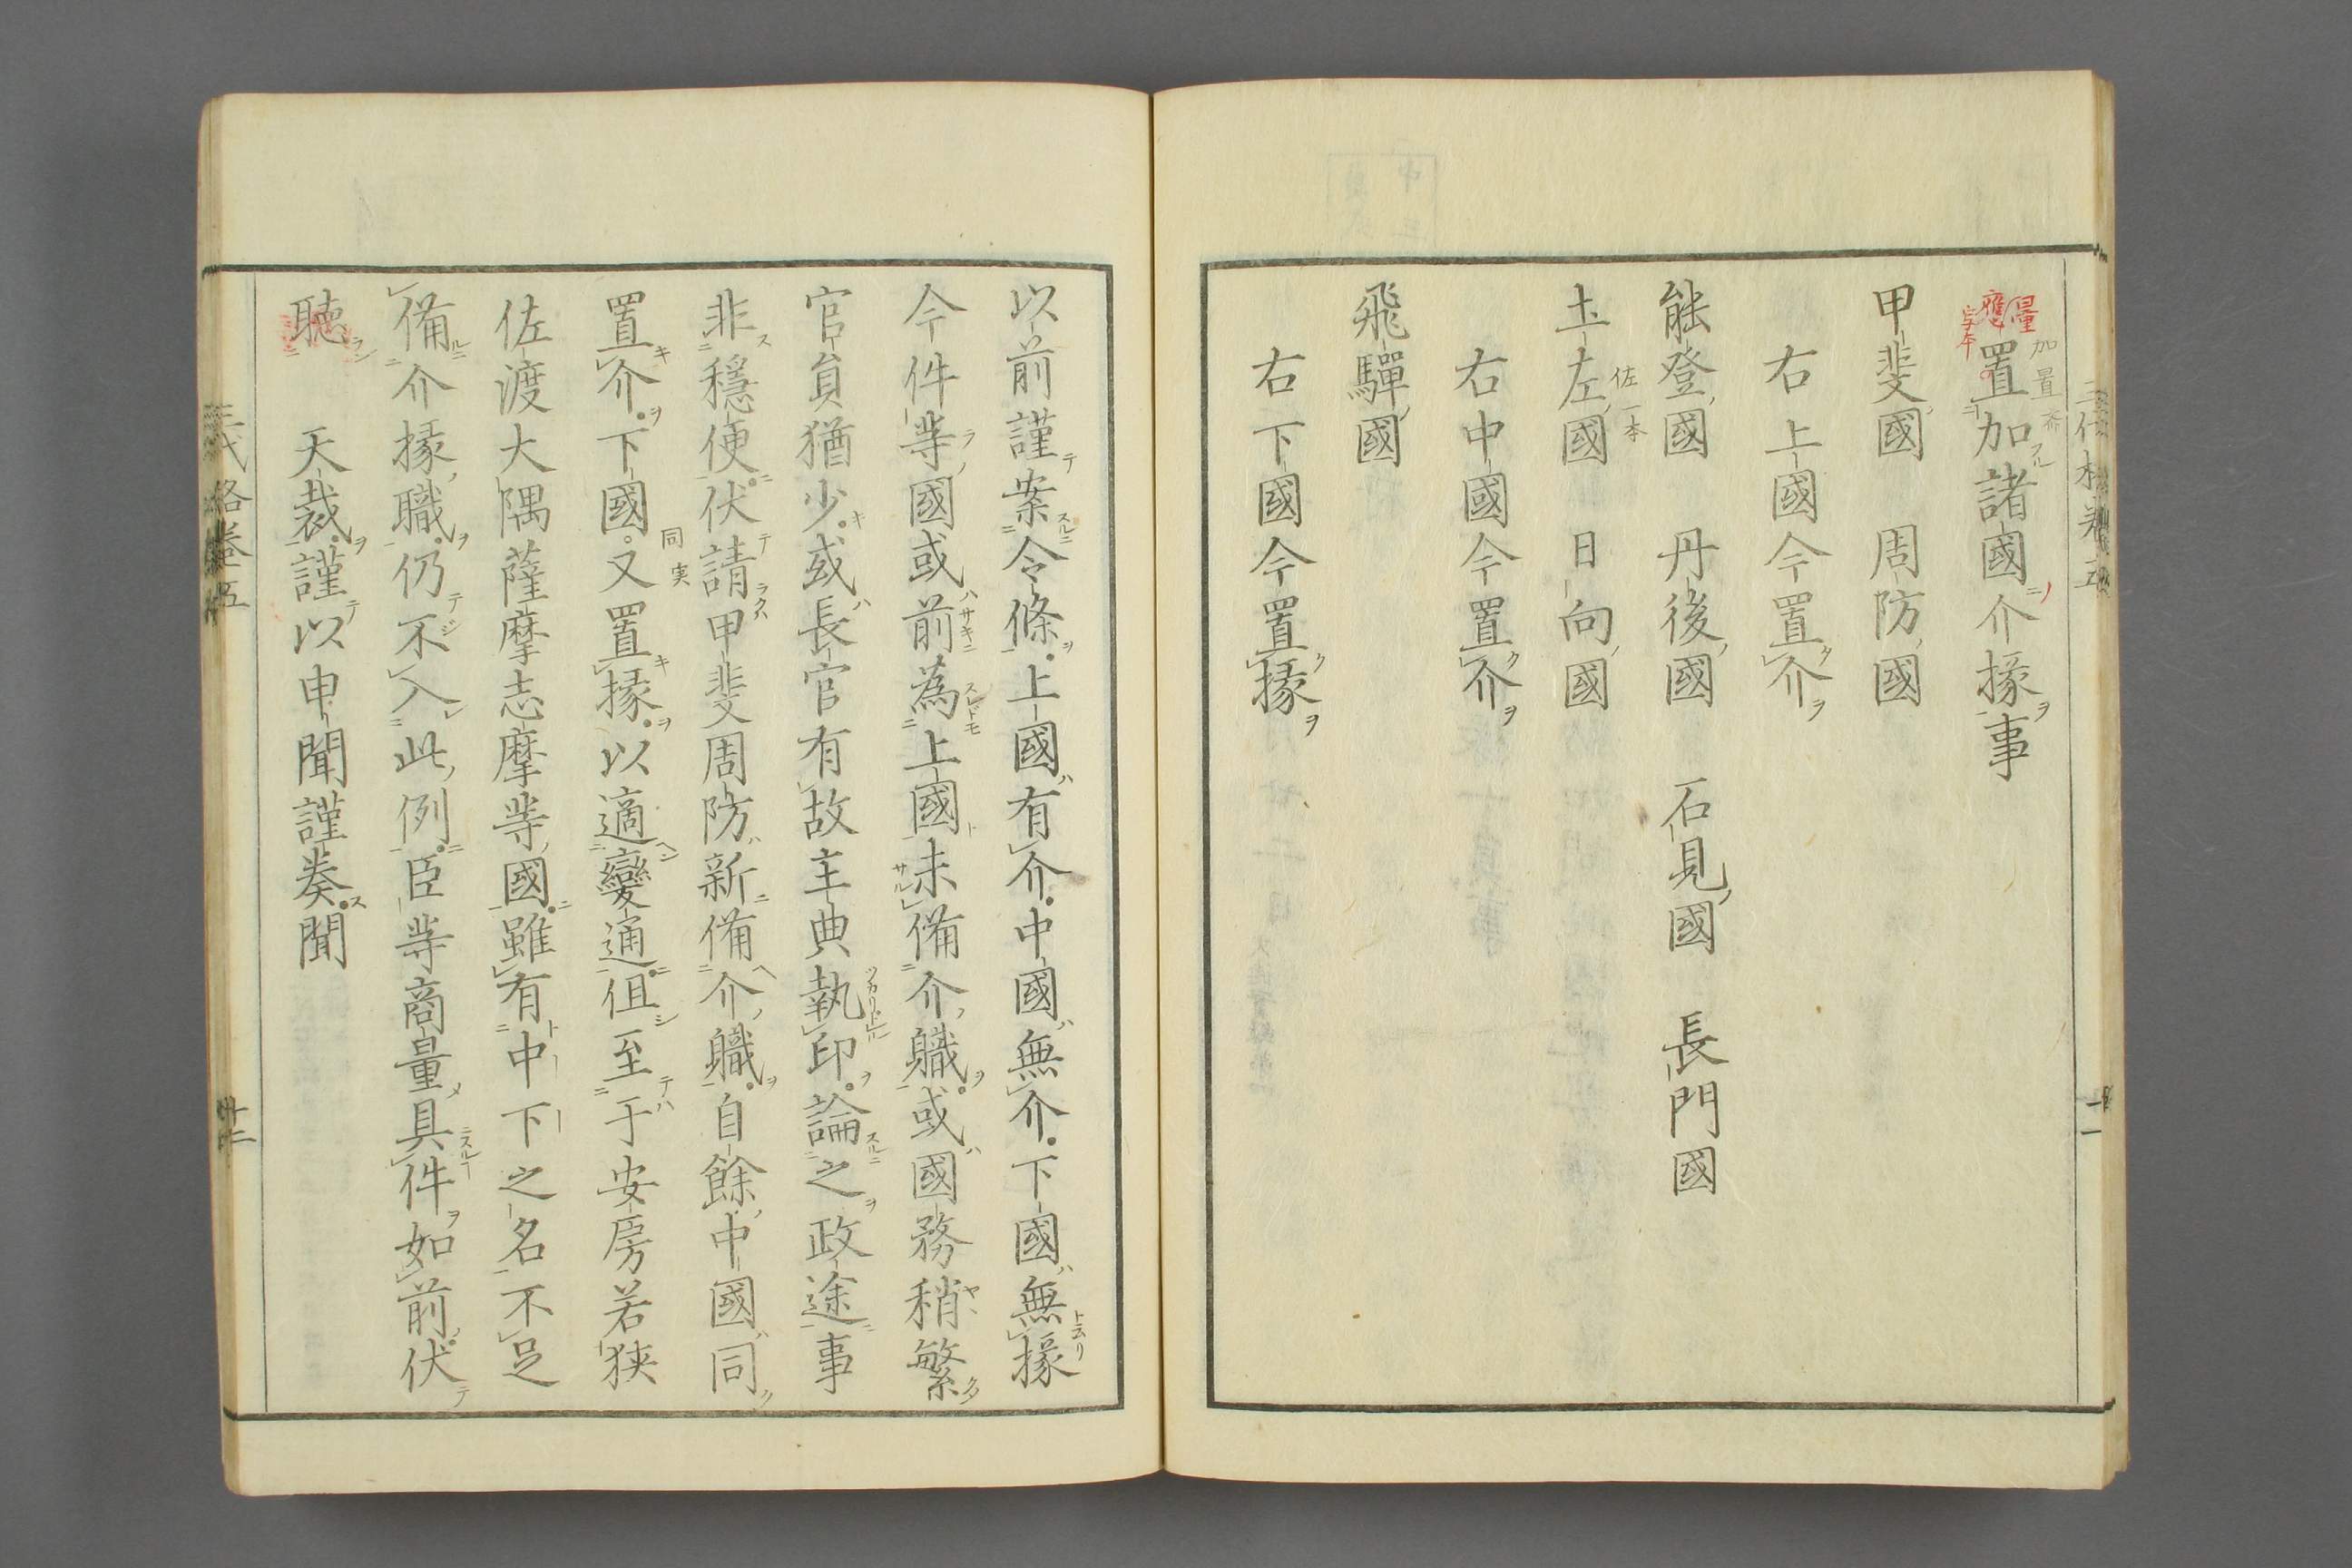 置加諸國介掾事
甲斐國　周防國
右上國今置介
能登國　丹後國　石見國　長門國
土左國　日向國
佐一本
右中國今置介
飛驒國
右下國今置掾
以前謹案令條上國有介中國無介下國無掾
今件等國或前為上國未備介職或國務稍繁
官員猶少或長官有故主典執印論之政途事
非穩便伏請甲斐周防新備介職自餘中國同
置介下國又置掾以適變通但至于安房若狹
同実
佐渡大隅薩摩志摩等國雖有中下之名不足
備介掾職仍不入此例臣等商量具件如前伏
聽　天裁謹以申聞謹奏聞
三代格卷五
十二